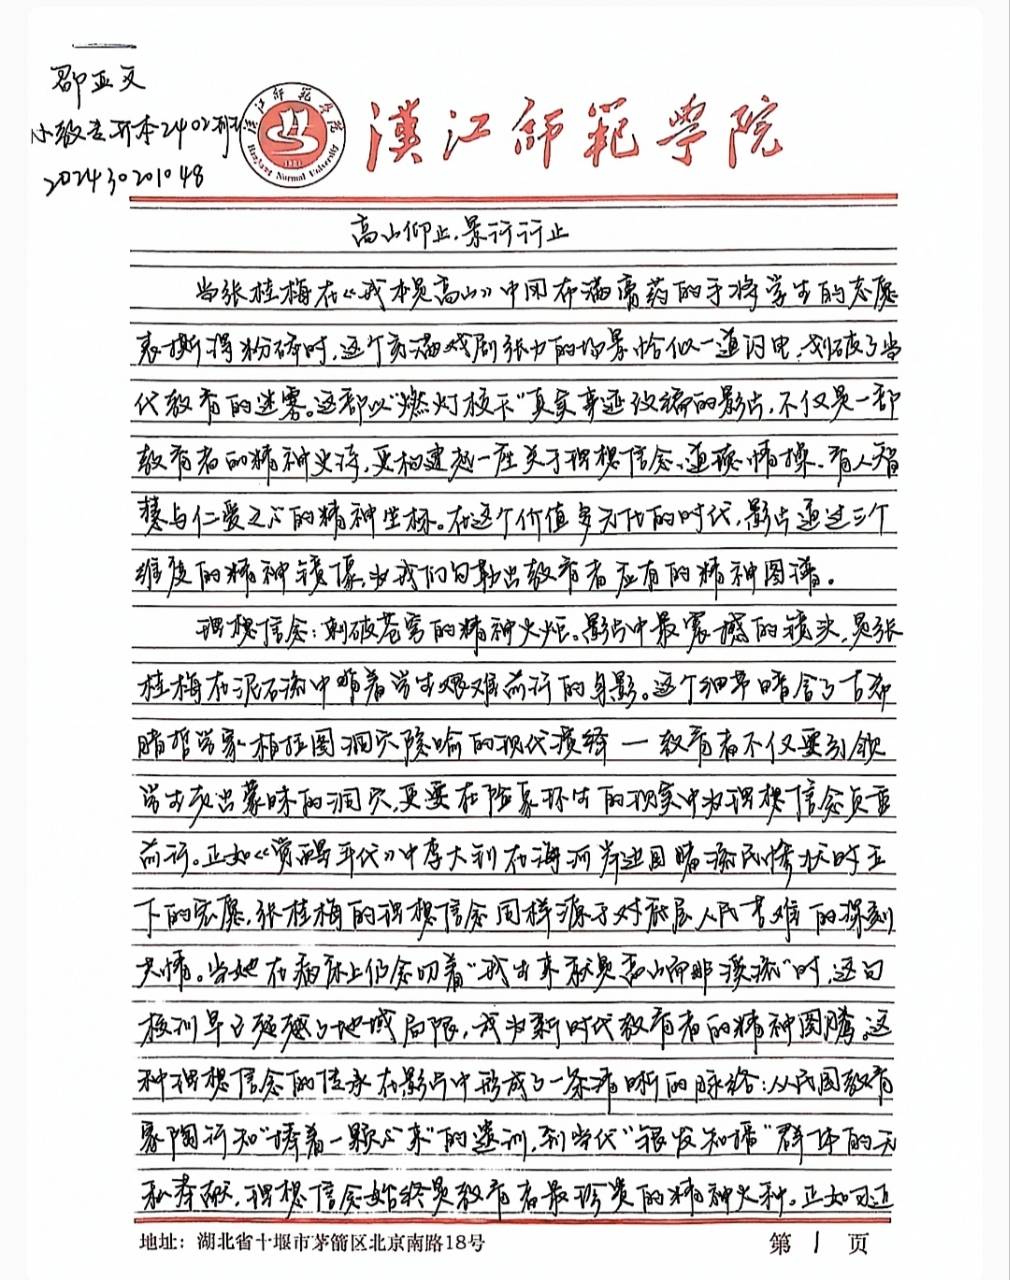 邵亚文
小教专升本2402班
202430201048
汉江师范学院
Hanjiang Normal University
1931
漢江師範學院
高山仰止,景行行止
当张桂梅在《我本是高山》中用布满膏药的手将学生的志愿
表撕得粉碎时,这个充满戏剧张力的场景恰似一道闪电,划破了当
代教育的迷雾。这部以"燃灯校长"真实事迹改编的影片,不仅是一部
教育者的精神史诗,更构建起一座关于理想信念、道德情操、育人智
慧与仁爱之心的精神坐标。在这个价值多元化的时代,影片通过三个
维度的精神镜像,为我们勾勒出教育者应有的精神图谱。
理想信念:刺破苍穹的精神火炬。影片中最震撼的镜头,是张
桂梅在泥石流中背着学生艰难前行的身影。这个细节暗含了古希
腊哲学家柏拉图洞穴隐喻的现代演绎—教育者不仅要引领
学生走出蒙昧的洞穴,更要在险象环生的现实中为理想信念负重
前行。正如《觉醒年代》中李大钊在海河岸边目睹流民惨状时立
下的宏愿,张桂梅的理想信念同样源于对底层人民苦难的深刻
共情。当她在病床上仍念叨着"我生来就是高山而非溪流"时,这句
校训早已超越了地域局限,成为新时代教育者的精神图腾。这
种理想信念的传承在影片中形成了一条清晰的脉络:从民国教育
家陶行知"捧着一颗心来"的遗训,到当代"银发知播"群体的无
私奉献,理想信念始终是教育者最珍贵的精神火种。正如习近
地址:湖北省十堰市茅箭区北京南路18号
第 1 页